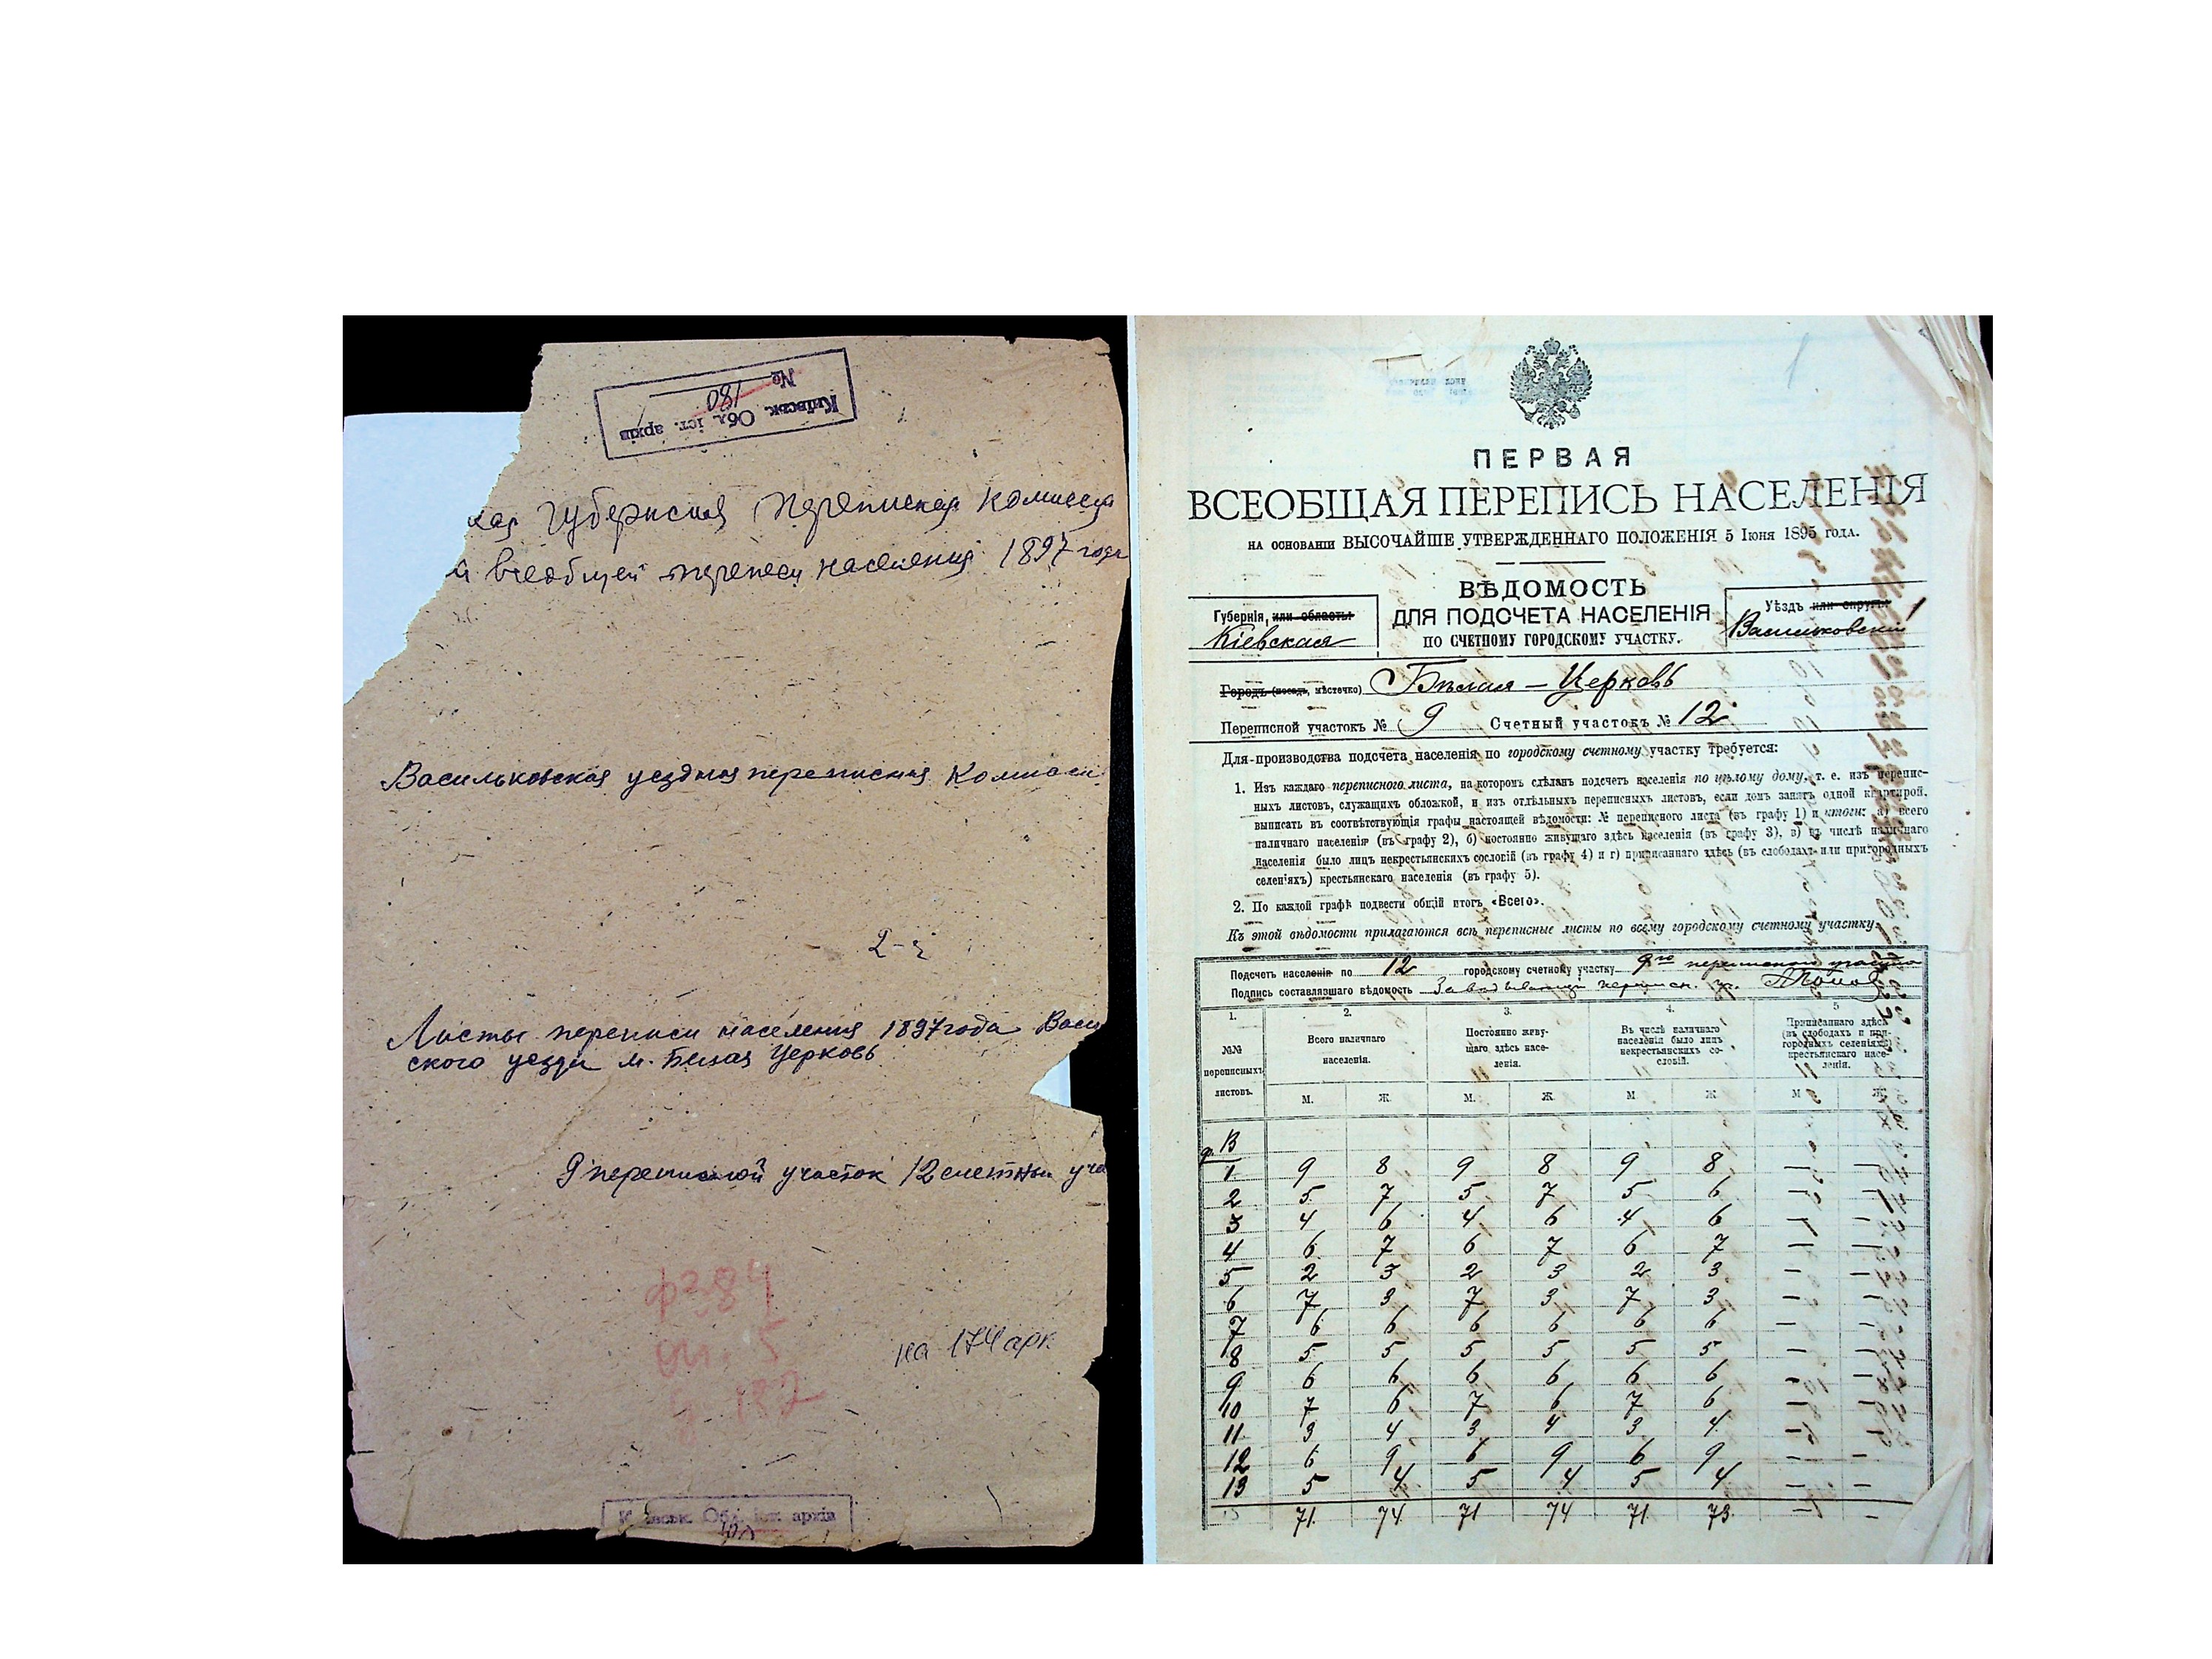 Київськ. Обл. іст. архів
№ 180
кая Губернская Переписная Комиссия
й всеобщей переписи населения 1897 года
Васильковская уездная переписная Комисси
2-я
Листы переписи населения 1897 года Васи
ского уезда м. Белая Церковь
9 переписной участок 12 счетный уча
ф 384
оп. 5
на 174 арк
Обл. іст. архів
1
ПЕРВАЯ
ВСЕОБЩАЯ ПЕРЕПИСЬ НАСЕЛЕНІЯ
НА ОСНОВАНІИ ВЫСОЧАЙШЕ УТВЕРЖДЕННАГО ПОЛОЖЕНІЯ 5 Іюня 1895 ГОДА.
ВѢДОМОСТЬ
ДЛЯ ПОДСЧЕТА НАСЕЛЕНІЯ
ПО СЧЕТНОМУ ГОРОДСКОМУ УЧАСТКУ.
Губернія, или область:
Кіевская
Уѣздъ или округъ:
Васильковскій
Городъ (посадъ, мѣстечко) Бѣлая – Церковь
Переписной участокъ № 9 Счетный участокъ № 12
Для производства подсчета населенія по городскому счетному участку требуется:
1. Изъ каждаго переписного листа, на которомъ сдѣланъ подсчетъ населенія по цѣлому дому, т. е. изъ перепис-
ныхъ листовъ, служащихъ обложкой, и изъ отдѣльныхъ переписныхъ листовъ, если домъ занятъ одной квартирой,
выписать въ соотвѣтствующія графы настоящей вѣдомости: № переписного листа (въ графу 1) и итоги: а) всего
наличнаго населенія (въ графу 2), б) постоянно живущаго здѣсь населенія (въ графу 3), в) въ числѣ наличнаго
населенія было лицъ некрестьянскихъ сословій (въ графу 4) и г) приписаннаго здѣсь (въ слободахъ или пригородныхъ
селеніяхъ) крестьянскаго населенія (въ графу 5).
2. По каждой графѣ подвести общій итогъ «Всего».
Къ этой вѣдомости прилагаются всѣ переписные листы по всему городскому счетному участку.
Подсчетъ населенія по 12 городскому счетному участку 9го переписного участка
Подпись составлявшаго вѣдомость Завѣдывающій переписн. уч.
1. 2. 3. 4. 5
№№ переписныхъ листовъ.
Всего наличнаго населенія.
Постоянно живу-щаго здѣсь насе-ленія.
Въ числѣ наличнаго населенія было лицъ некрестьянскихъ со-словій.
Приписаннаго здѣсь (въ слободахъ и при-городныхъ селеніяхъ) крестьянскаго насе-ленія.
М. Ж. М. Ж. М. Ж. М Ж.
1 9 8 9 8 9 8 — —
2 5 7 5 7 5 6 — —
3 4 6 4 6 4 6 — —
4 6 7 6 7 6 7 — —
5 2 3 2 3 2 3 — —
6 7 3 7 3 7 3 — —
7 6 6 6 6 6 6 — —
8 5 5 5 5 5 5 — —
9 6 6 6 6 6 6 — —
10 7 6 7 6 7 6 — —
11 3 4 3 4 3 4 — —
12 6 9 6 9 6 9 — —
13 5 4 5 4 5 4 — —
71 74 71 74 71 73 — —